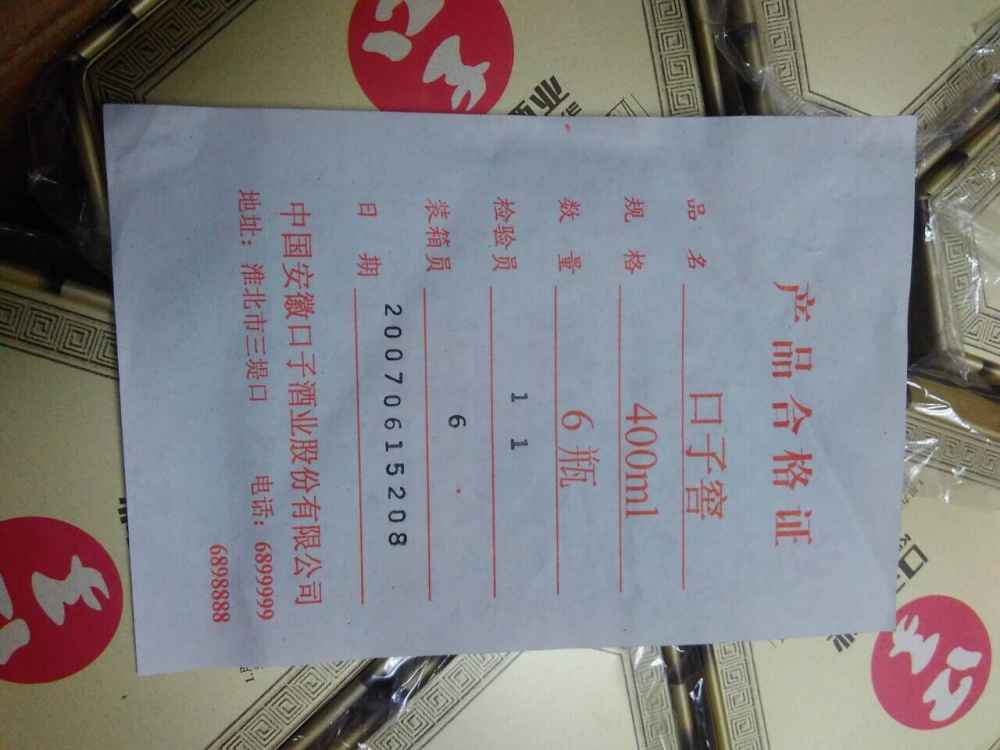 产品合格证
品 名 口子窖
规 格 400ml
数 量 6瓶
检验员 1 1
装箱员 6
日 期 20070615208
中国安徽口子酒业股份有限公司
地址：淮北市三堤口 电话：6899999
6898888